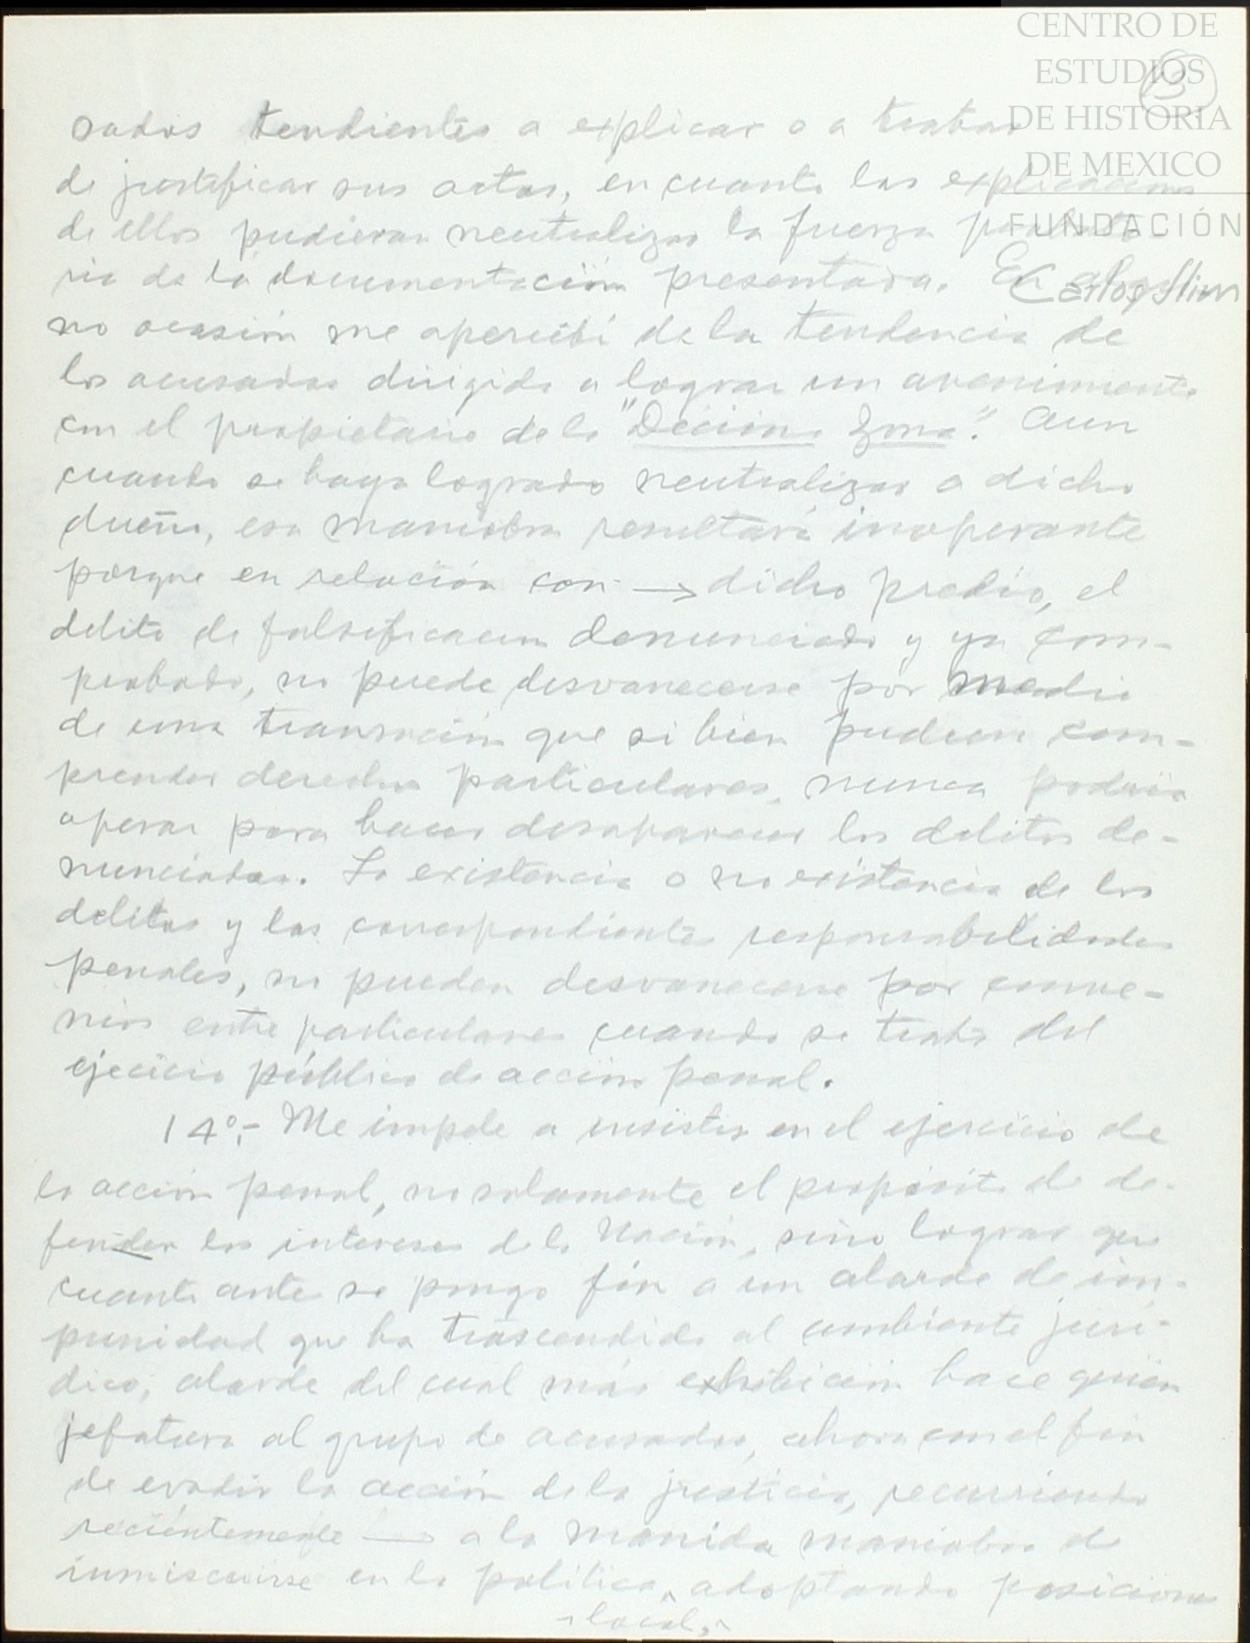 CENTRO DE
ESTUDIOS
DE HISTORIA
DE MEXICO
FUNDACIÓN
Carlos Slim
sados tendientes a explicar o a tratar
de justificar sus actos, en cuanto las explicaciones
de ellos pudieran neutralizar la fuerza probato-
ria de la documentación presentada. En
no ocasión me apercibí de la tendencia de
los acusados dirigida a lograr un avenimiento
con el propietario de la "Décima Zona". Aun
cuando se haya logrado neutralizar a dicho
dueño, esa maniobra resultará inoperante
porque en relación con → dicho predio, el
delito de falsificación denunciado y ya com-
probado, no puede desvanecerse por medio
de una transacción que si bien pudiera com-
prender derechos particulares, nunca podría
operar para hacer desaparecer los delitos de-
nunciados. La existencia o no existencia de los
delitos y las correspondientes responsabilidades
penales, no pueden desvanecerse por conve-
nios entre particulares cuando se trata del
ejercicio público de acción penal.
14°.- Me impele a insistir en el ejercicio de
la acción penal, no solamente el propósito de de-
fender los intereses de la Nación, sino lograr que
cuanto antes se ponga fin a un alarde de im-
punidad que ha trascendido al ambiente jurí-
dico, alarde del cual más exhibición hace quien
jefatura al grupo de acusados, ahora con el fin
de evadir la acción de la justicia, recurriendo
recientemente — a la manida maniobra de
inmiscuirse en la política, adoptando posiciones
local,